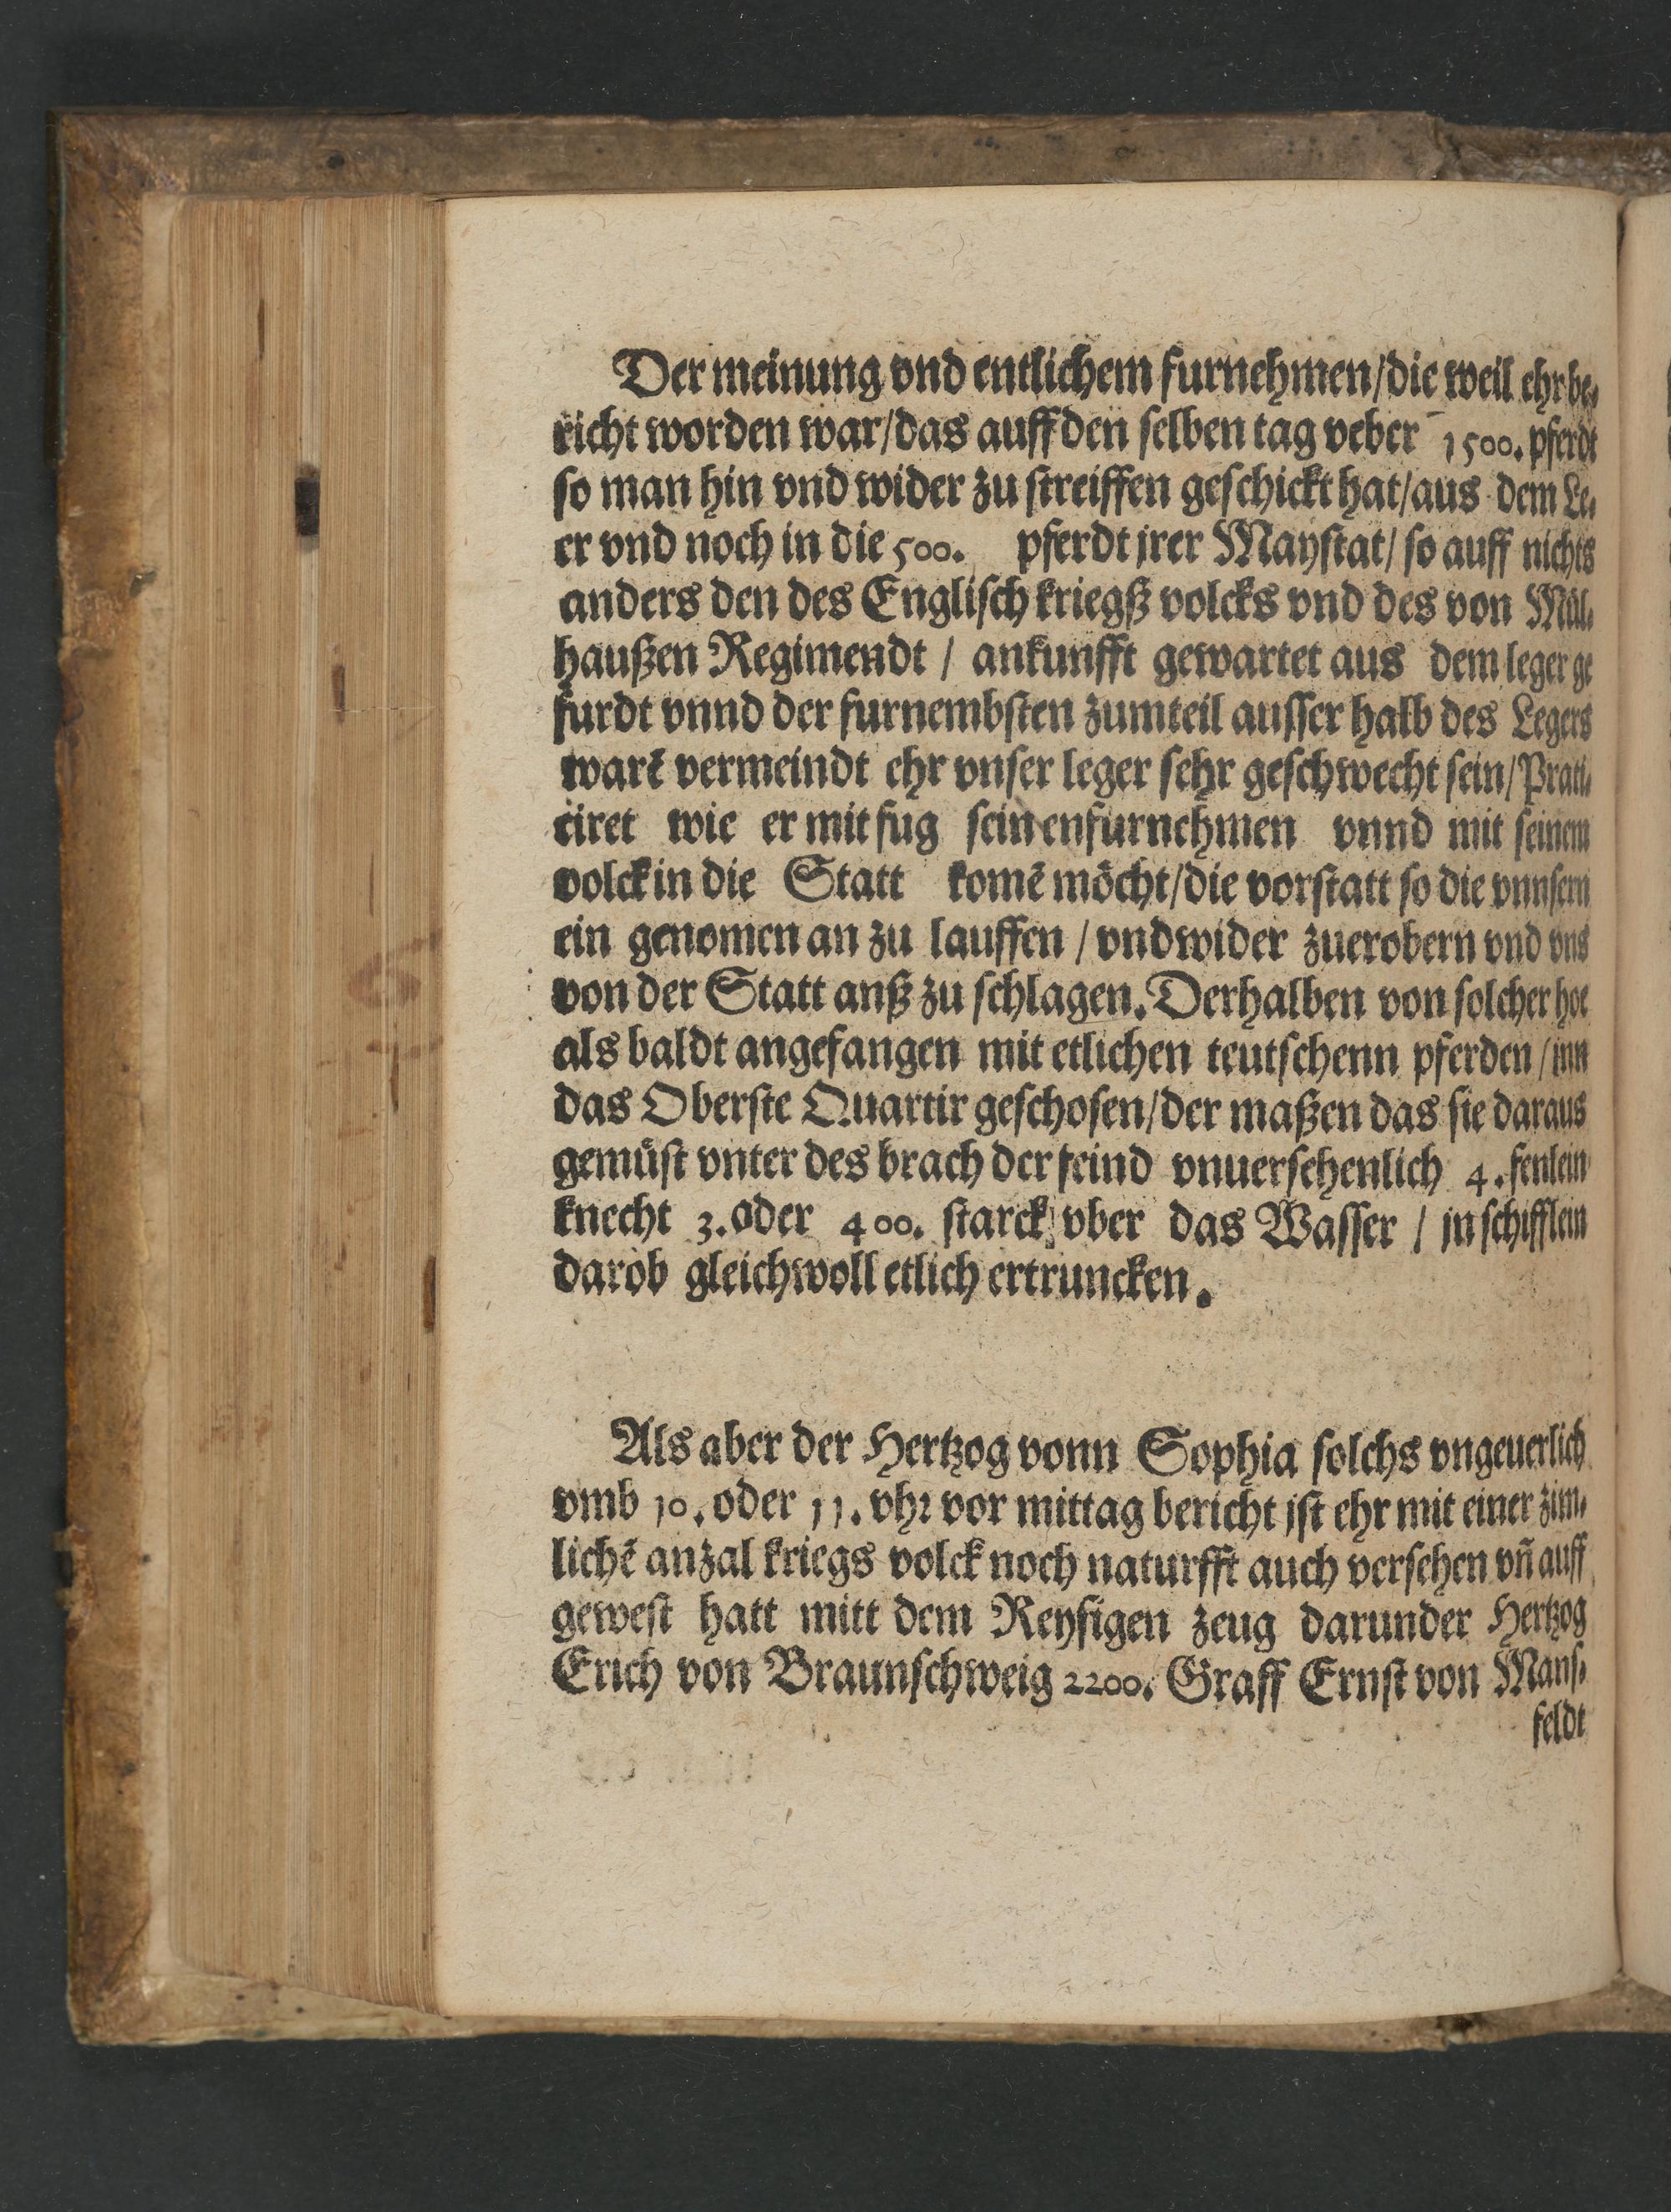 Der meinung vnd entlichem furnehmen/die weil ehr be⸗
richt worden war/das auff den selben tag veber 1500. pferdt
so man hin vnd wider zu streiffen geschickt hat/aus dem Le⸗
er vnd noch in die 500. pferdt jrer Maystat/ so auff nichts
anders den des Englisch kriegß volcks vnd des von Mül⸗
haußen Regimendt / ankunfft gewartet aus dem leger ge
furdt vnnd der furnembsten zumteil ausser halb des Legers
warẽ vermeindt ehr vnser leger sehr geschwecht sein/Prati⸗
ciret wie er mit fug seinenfurnehmen vnnd mit seinem
volck in die Statt komẽ möcht/die vorstatt so die vnnsern
ein genomen an zu lauffen / vndwider zuerobern vnd vns
von der Statt anß zu schlagen. Derhalben von solcher hoe
als baldt angefangen mit etlichen teutschenn pferden/inn
das Oberste Quartir geschosen/der maßen das sie daraus
gemüst vnter des brach der feind vnuersehenlich 4. fenlein
knecht 3. oder 400. starck vber das Wasser / jn schifflein
darob gleichwoll etlich ertruncken.
Als aber der Hertzog vonn Sophia solchs vngeuerlich
vmb 10. oder 11. vhr vor mittag bericht jst ehr mit einer zim⸗
lichẽ anzal kriegs volck noch naturfft auch versehen vñ auff
gewest hatt mitt dem Reysigen zeug darunder Hertzog
Erich von Braunschweig 2200. Graff Ernst von Mans⸗
feldt